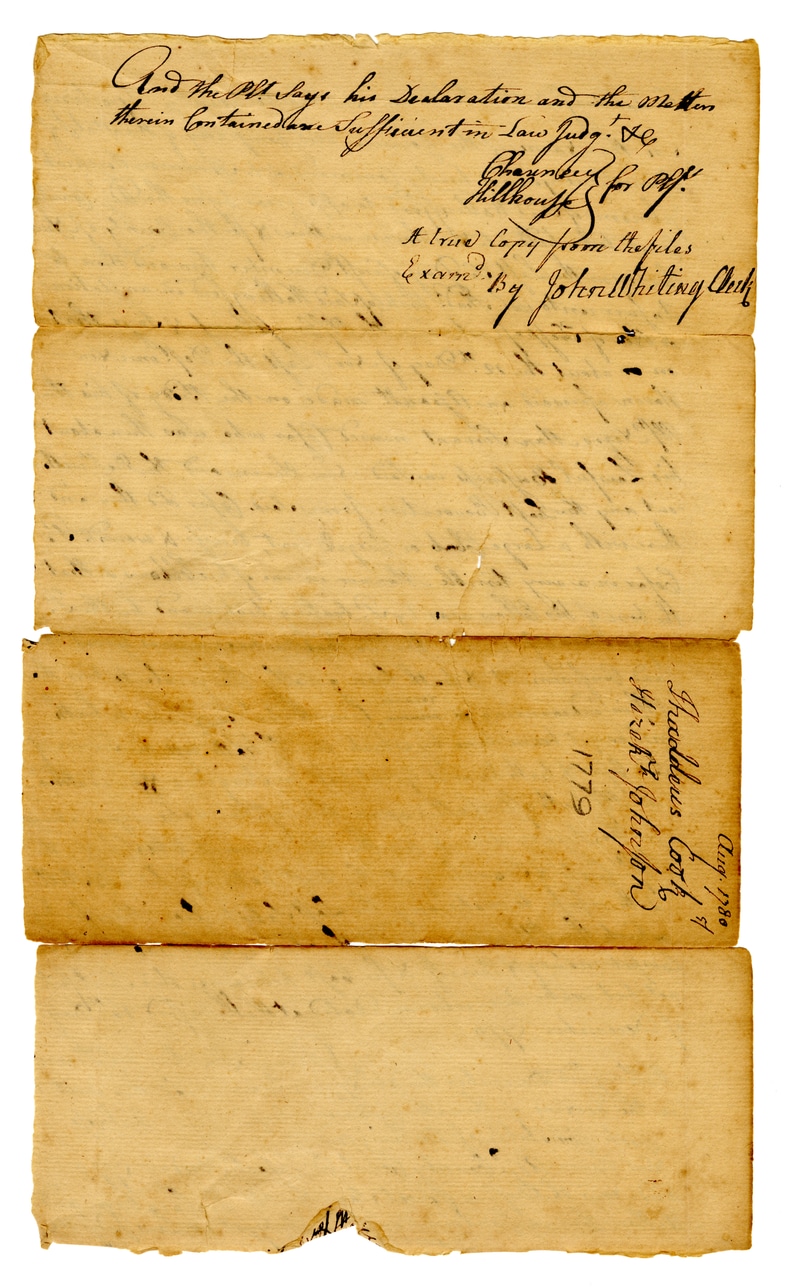 And the Plt. Says his Declaration and the Matters
therein Contained are Sufficient in Law Judg.t &c
Chauncey
Hillhouse } for Plf.
A true Copy from the files
Examd. By John Whiting Clerk
Aug. 1780
Thaddeus Cook
Johnson
1779